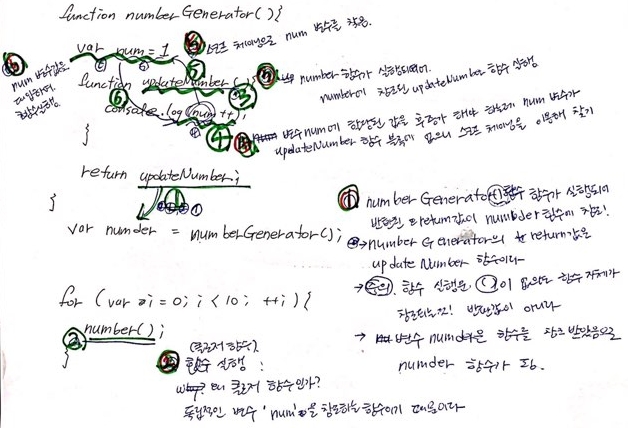 function numberGenerator(){
var num = 1
⑤ 스코프 체이닝으로 num 변수를 찾음.
⑥ num 변수값을
대입하여
함수실행.
function updateNumber(){
③ number 함수가 실행되어
number에 참조된 updateNumber 함수 실행
console.log(num++);
④ 변수 num에 할당된 값을
updateNumber 함수 블록에 없으니 스코프 체이닝을 이용해 찾기
}
return updateNumber;
①
}
var number = numberGenerator();
① numberGenerator() 함수가 실행되어
반환된 return값이 number 함수에 참조!
→ number Generator의 return값은
updateNumber 함수이다
→ 주의. 함수 실행문 ()이 없으므로 함수 자체가
참조되는것! 반환값이 아니다
→ 변수 number은 함수를 참조 받았음으로
number 함수가 됨.
for (var i = 0; i < 10; ++i){
② number();
}
(클로저 함수)
② 함수 실행 :
why? 왜 클로저 함수인가?
독립적인 변수 'num'을 참조하는 함수이기 때문이다